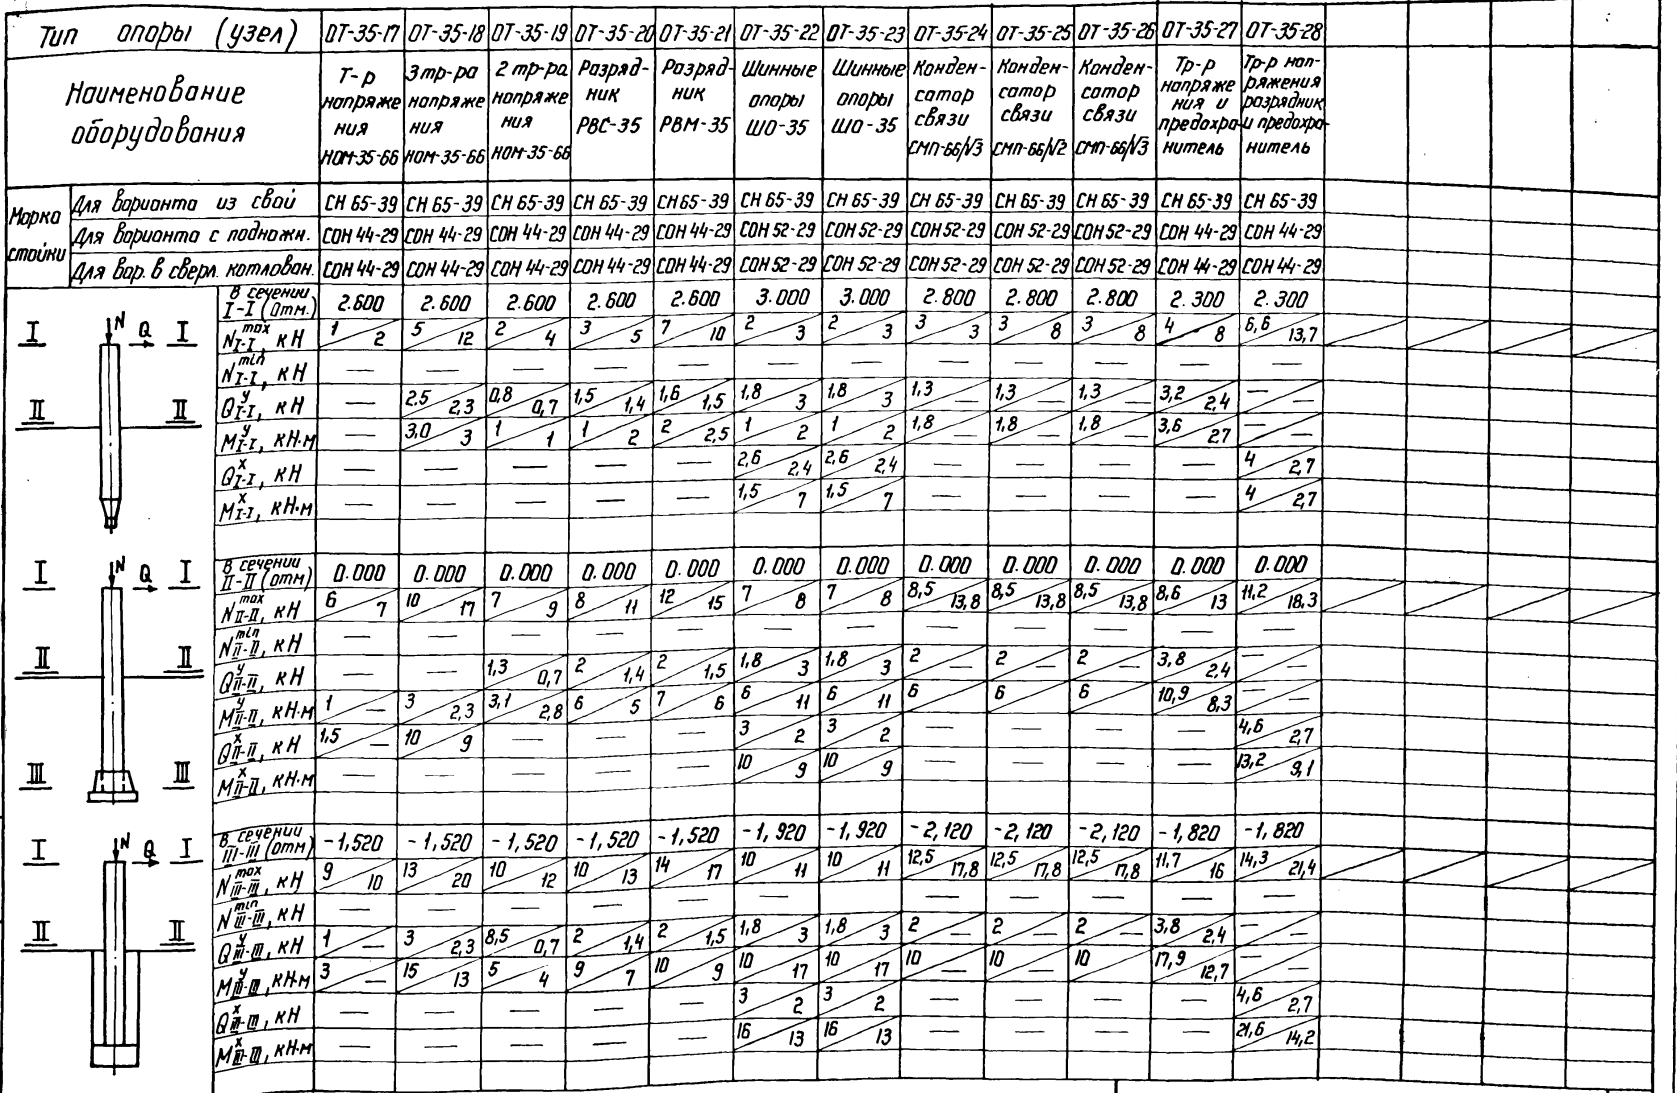 Тип опоры (узел) ОТ-35-17 ОТ-35-18 ОТ-35-19 ОТ-35-20 ОТ-35-21 ОТ-35-22 ОТ-35-23 ОТ-35-24 ОТ-35-25 ОТ-35-26 ОТ-35-27 ОТ-35-28
Наименование оборудования
Т-р напряжения НОМ-35-66
3 тр-ра напряжения НОМ-35-66
2 тр-ра напряжения НОМ-35-66
Разрядник РВС-35
Разрядник РВМ-35
Шинные опоры ШО-35
Шинные опоры ШО-35
Конденсатор связи СМП-66/√3
Конденсатор связи СМП-66/√2
Конденсатор связи СМП-66/√3
Тр-р напряжения и предохранитель
Тр-р напряжения разрядник и предохранитель
Марка стойки
Для варианта из свай СН 65-39 СН 65-39 СН 65-39 СН 65-39 СН 65-39 СН 65-39 СН 65-39 СН 65-39 СН 65-39 СН 65-39 СН 65-39 СН 65-39
Для варианта с подножн. СОН 44-29 СОН 44-29 СОН 44-29 СОН 44-29 СОН 44-29 СОН 52-29 СОН 52-29 СОН 52-29 СОН 52-29 СОН 52-29 СОН 44-29 СОН 44-29
Для вар. в сверл. котлован. СОН 44-29 СОН 44-29 СОН 44-29 СОН 44-29 СОН 44-29 СОН 52-29 СОН 52-29 СОН 52-29 СОН 52-29 СОН 52-29 СОН 44-29 СОН 44-29
I N Q I
II II
В сечении I-I (отм.) 2.600 2.600 2.600 2.600 2.600 3.000 3.000 2.800 2.800 2.800 2.300 2.300
N max I-I, кН 1/2 5/12 2/4 3/5 7/10 2/3 2/3 3/3 3/8 3/8 4/8 6,6/13,7
N min I-I, кН — — — — — — — — — — — —
Q у I-I, кН — 2.5/2,3 0,8/0,7 1,5/1,4 1,6/1,5 1,8/3 1,8/3 1,3/— 1,3/— 1,3/— 3,2/2,4 —/—
М у I-I, кН·м — 3,0/3 1/1 1/2 2/2,5 1/2 1/2 1,8/— 1,8/— 1,8/— 3,6/27 —/—
Q х I-I, кН — — — — — 2,6/2,4 2,6/2,4 — — — — 4/2,7
М х I-I, кН·м — — — — — 1,5/7 1,5/7 — — — — 4/2,7
I N Q I
II II
III III
В сечении II-II (отм) 0.000 0.000 0.000 0.000 0.000 0.000 0.000 0.000 0.000 0.000 0.000 0.000
N max II-II, кН 6/7 10/17 7/9 8/11 12/15 7/8 7/8 8,5/13,8 8,5/13,8 8,5/13,8 8,6/13 11,2/18,3
N min II-II, кН — — — — — — — — — — — —
Q у II-II, кН — — 1,3/0,7 2/1,4 2/1,5 1,8/3 1,8/3 2/— 2/— 2/— 3,8/2,4 —/—
М у II-II, кН·м 1/— 3/2,3 3,1/2,8 6/5 7/6 6/11 6/11 6 6 6 10,9/8,3 —/—
Q х II-II, кН 1,5/— 10/9 — — — 3/2 3/2 — — — — 4,6/2,7
М х II-II, кН·м — — — — — 10/9 10/9 — — — — 13,2/9,1
I N Q I
II II
В сечении III-III (отм) -1,520 -1,520 -1,520 -1,520 -1,520 -1,920 -1,920 -2,120 -2,120 -2,120 -1,820 -1,820
N max III-III, кН 9/10 13/20 10/12 10/13 14/17 10/11 10/11 12,5/17,8 12,5/17,8 12,5/17,8 11,7/16 14,3/21,4
N min III-III, кН — — — — — — — — — — — —
Q у III-III, кН 1/— 3/2,3 8,5/0,7 2/1,4 2/1,5 1,8/3 1,8/3 2/— 2/— 2/— 3,8/2,4 —/—
М у III-III, кН·м 3/— 15/13 5/4 9/7 10/9 10/17 10/17 10/— 10/— 10 17,9/12,7 —/—
Q х III-III, кН — — — — — 3/2 3/2 — — — — 4,6/2,7
М х III-III, кН·м — — — — — 16/13 16/13 — — — — 21,6/14,2